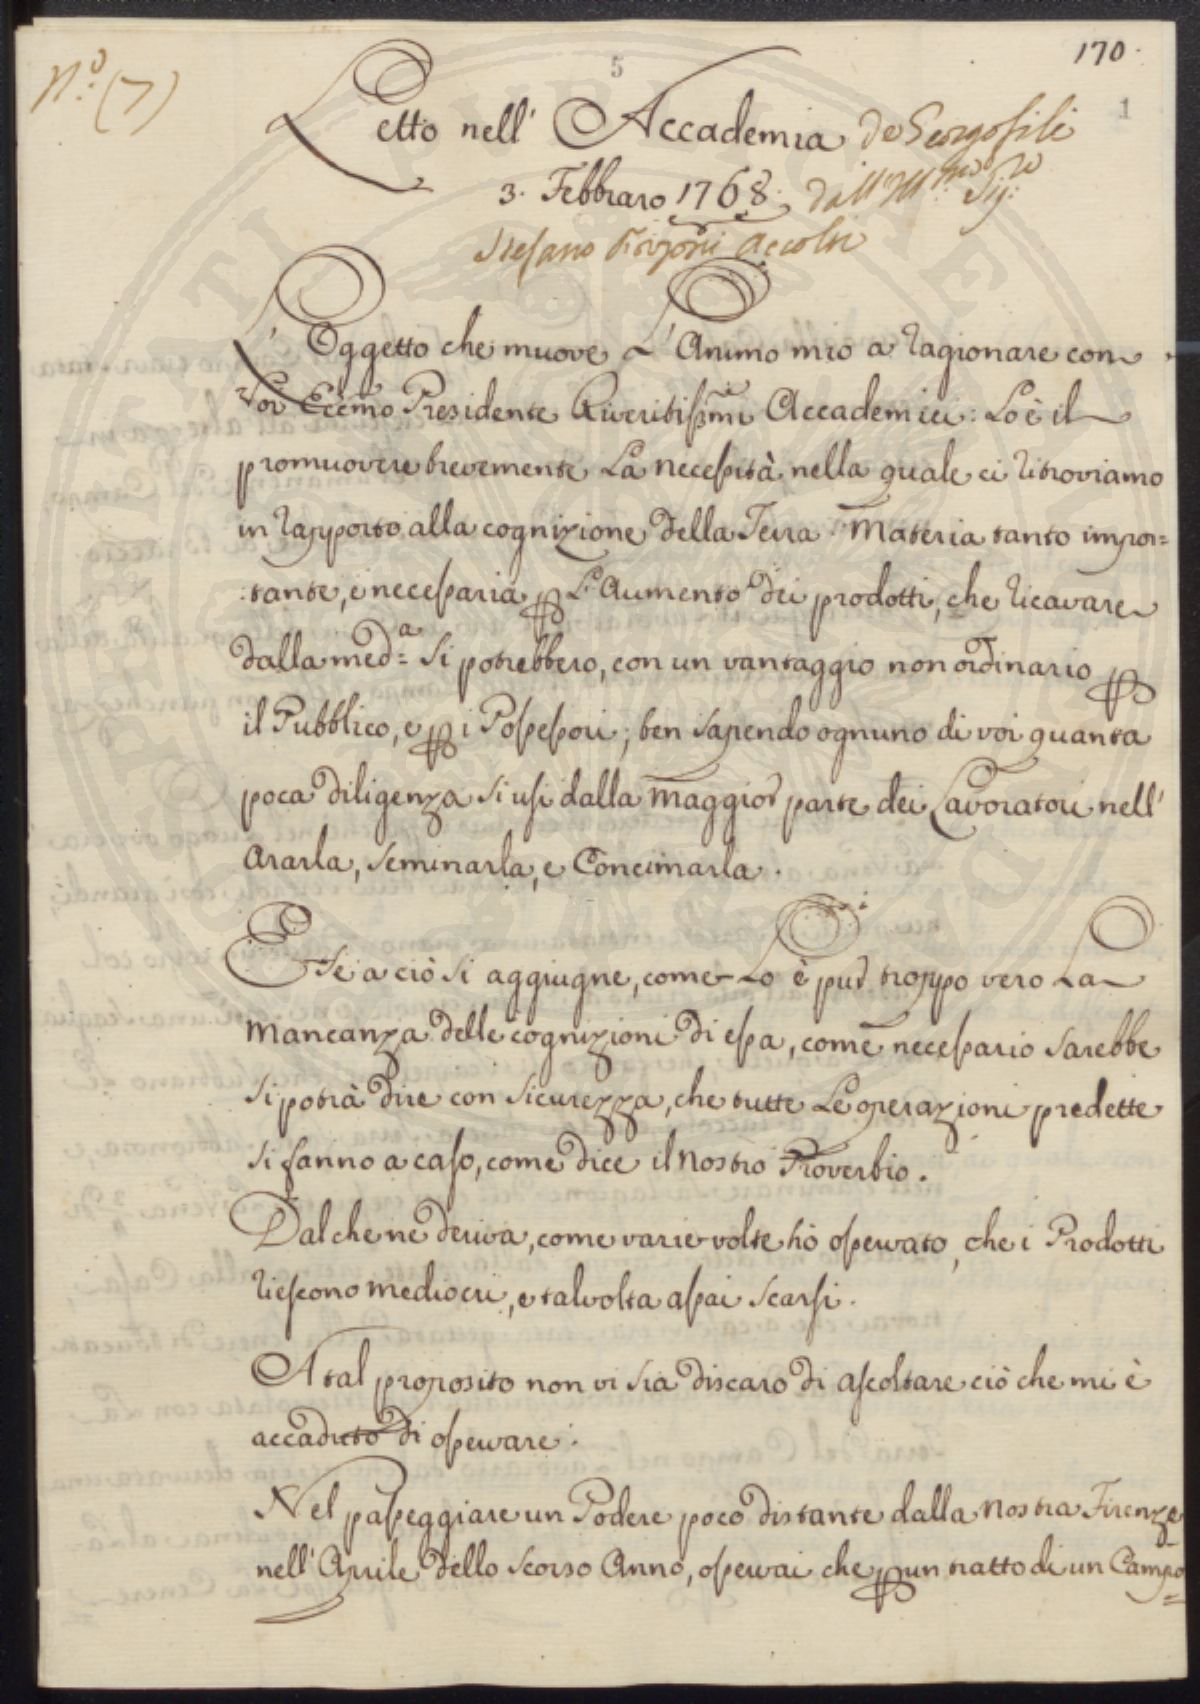 N.o (7)
5
170.
1
Letto nell' Accademia de Georgofili
3. Febbraro 1768. dall' Ill.mo Sig.re
Stefano Accolti
L' Oggetto che muove L' Animo mio a ragionare con
Voi Eccmo Presidente Riveritissmi Accademici: Lo è il
promuovere brevemente La necessità nella quale ci ritroviamo
in rapporto alla cognizione della Terra. Materia tanto impor=
:tante, e necessaria p L' Aumento dei prodotti, che ricavare
dalla med=a si potrebbero, con un vantaggio non ordinario p
il Pubblico, e p i Possessori; ben sapendo ognuno di voi quanta
poca diligenza si usi dalla maggior parte dei Lavoratori nell'
Ararla, Seminarla, e Concimarla.
E se a ciò si aggiugne, come Lo è pur troppo vero La
mancanza delle cognizioni di essa, come necessario sarebbe
si potrà dire con sicurezza, che tutte Le operazioni predette
si fanno a caso, come dice il nostro Proverbio.
Dal che ne deriva, come varie volte hò osservato, che i Prodotti
riescono mediocri, e talvolta assai scarsi.
A tal proposito non vi sia discaro di ascoltare ciò che mi è
accaduto di osservare.
Nel passeggiare un Podere poco distante dalla nostra Firenze
nell' Aprile dello scorso Anno, osservai che p un tratto di un Campo